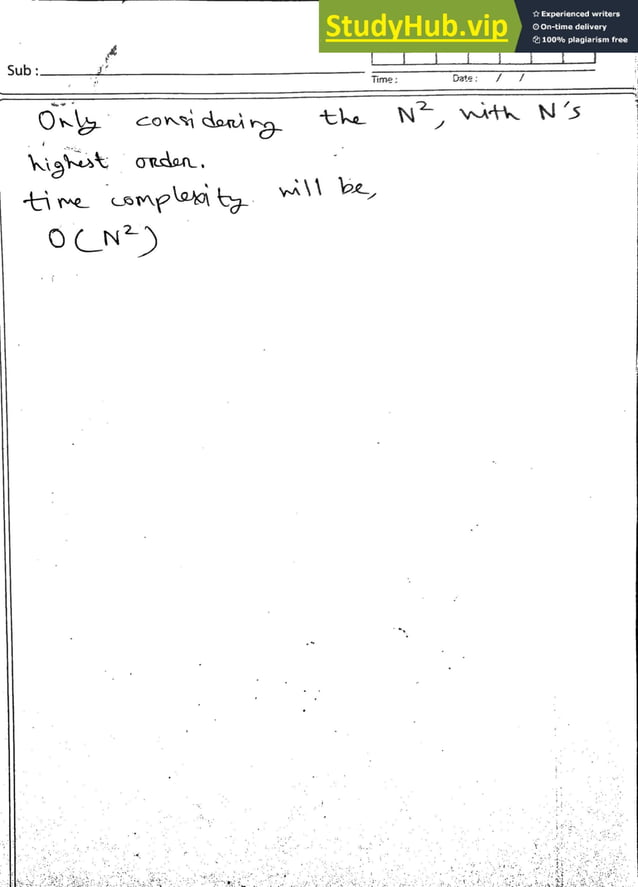 StudyHub.vip
☆ Experienced writers
On-time delivery
100% plagiarism free
Sub :
Time : Date : / /
Only considering the N², with N's
highest order.
time complexity will be,
O(N²)